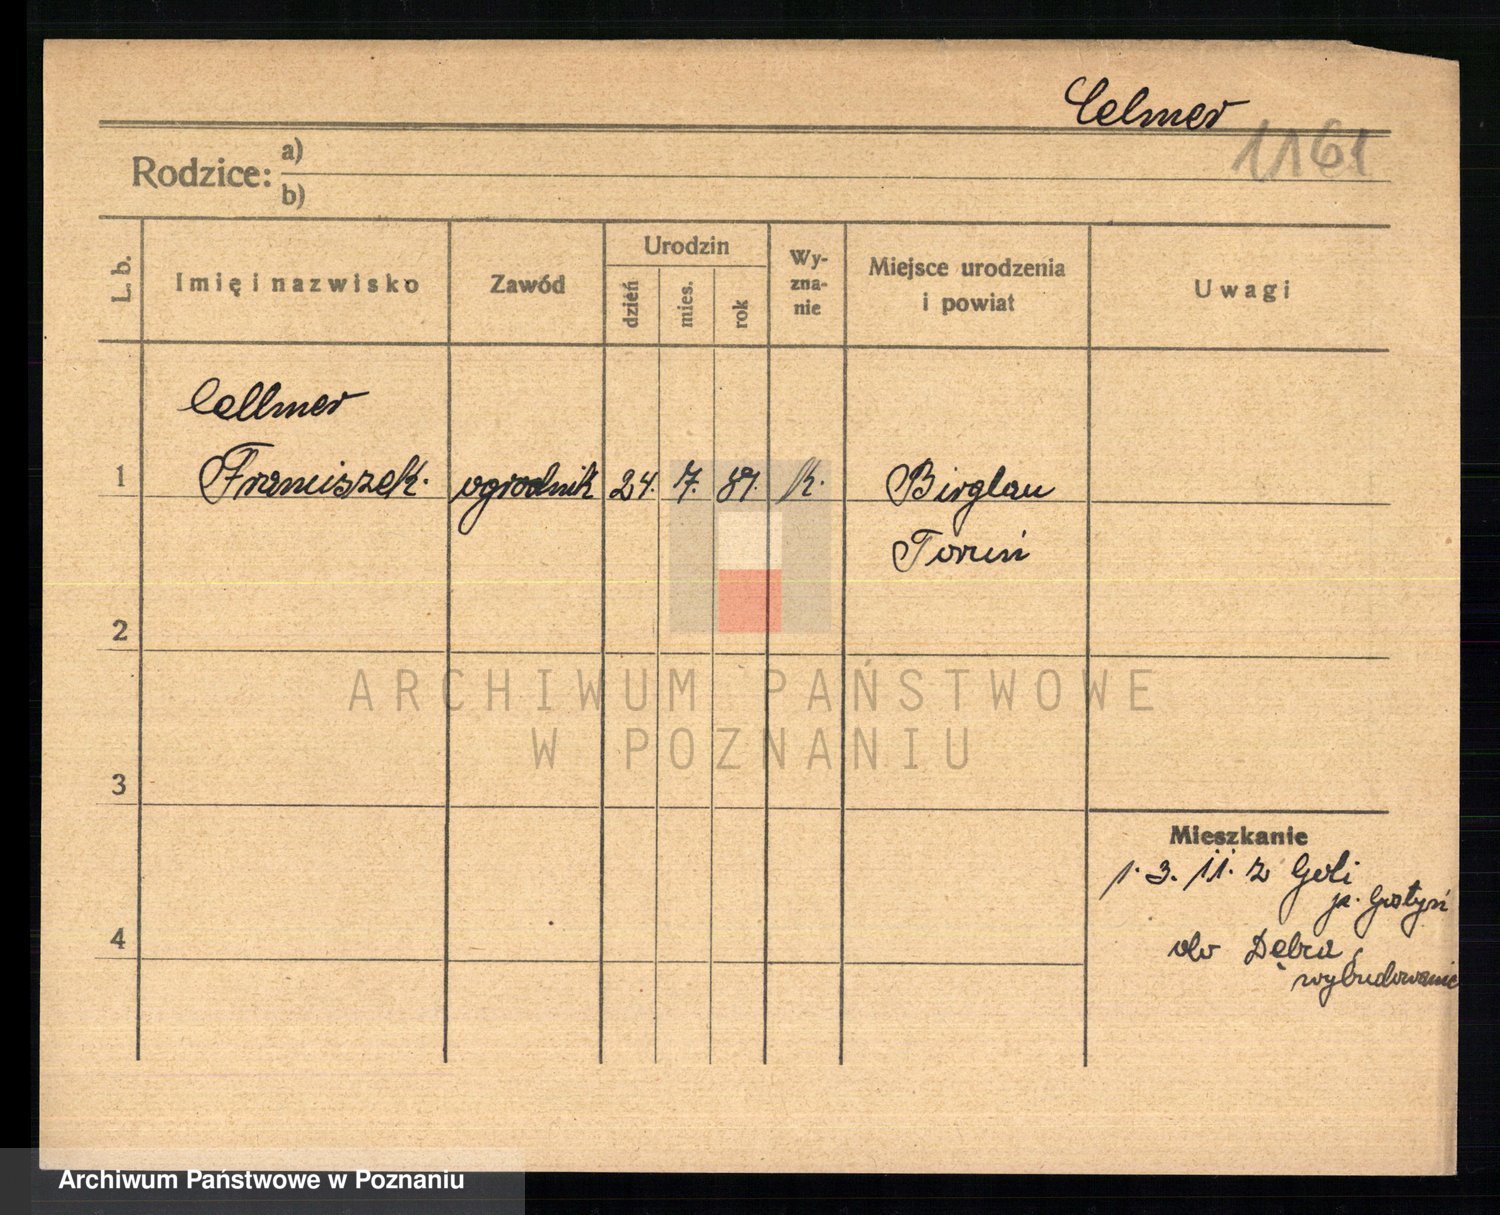 Celmer
1161
Rodzice: a)
b)
L. b.
Imię i nazwisko
Zawód
Urodzin
dzień
mies.
rok
Wy-
zna-
nie
Miejsce urodzenia
i powiat
Uwagi
Cellmer
1 Franciszek. ogrodnik 24. 7. 87. k. Birglau
Toruń
2
ARCHIWUM PAŃSTWOWE
W POZNANIU
3
Mieszkanie
1. 3. 11. z Goli
p. Gostyń
4
do Dębca,
wybudowanie
Archiwum Państwowe w Poznaniu